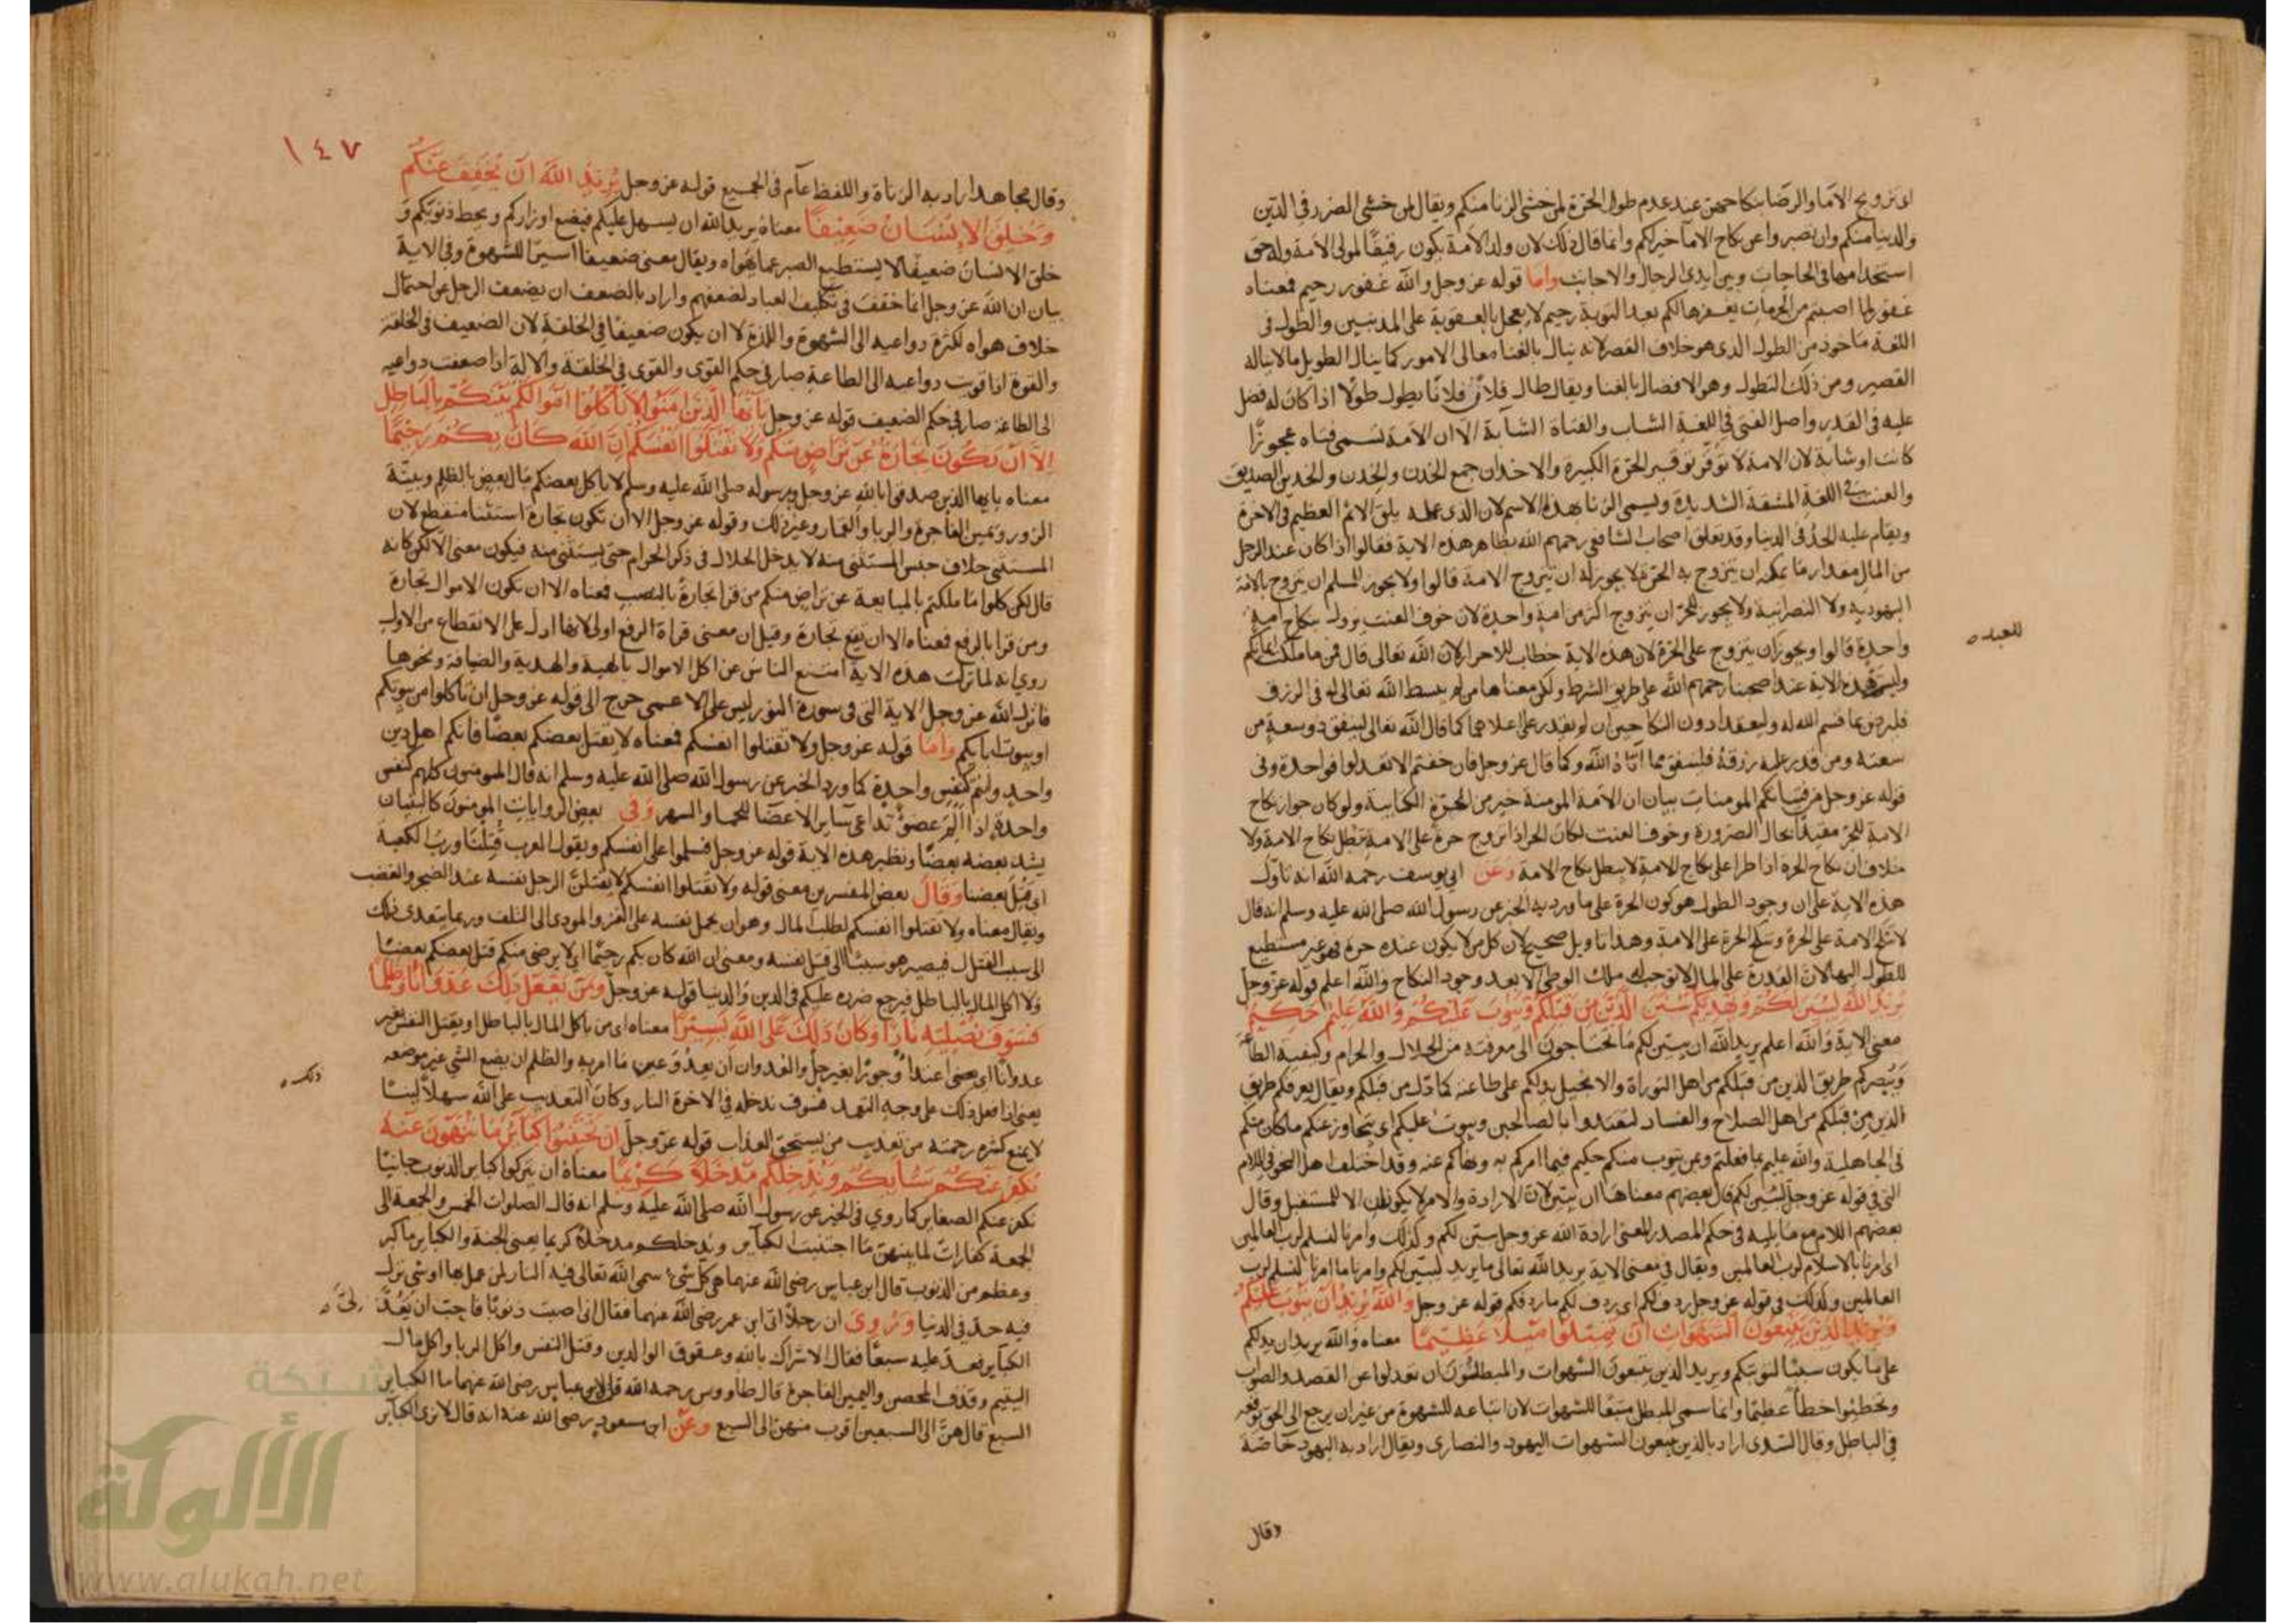 اى تزويج الاماء والرضا بنكاحهن عند عدم طول الحرة لمن خشى الزنا منكم ويقال لمن خشى الضرر فى الدين
والدنيا منكم وان تصبروا عن نكاح الاما خير لكم وانما قال ذلك لان ولد الامة يكون رقيقا لمولى الامة وله حق
استخدامها فى الحاجات وبين ايدى الرجال والاجانب واما قوله عز وجل والله غفور رحيم فمعناه
غفور لما اصبتم من الحرمات يغفرها لكم بعد التوبة رحيم لا يعجل بالعقوبة على المذنبين والطول فى
اللغة ماخوذ من الطول الذى هو خلاف القصر لانه ينال بالغنا معالى الامور كما ينال الطويل ما لا يناله
القصير ومن ذلك التطول وهو الافضال بالغنا ويقال طال فلان فلانا يطول طولا اذا كان له فضل
عليه فى القدر واصل الفتى فى اللغة الشاب والفتاة الشابة الا ان الامة تسمى فتاه عجوزا
كانت او شابة لان الامة لا توقر توقير الحرة الكبيرة والاخدان جمع الخدن والخدن والخدين الصديق
والعنت فى اللغة المشقة الشديدة ويسمى الزنا بهذا الاسم لان الذى عمله يلقى الاثم العظيم فى الاخرة
ويقام عليه الحد فى الدنيا وقد تعلق اصحاب الشافعى رحمهم الله بظاهر هذه الاية فقالوا اذا كان عند الرجل
من المال مقدار ما يمكنه ان يتزوج به الحرة لا يجوز له ان يتزوج الامة قالوا ولا يجوز للمسلم ان يتزوج بالامة
اليهودية ولا النصرانية ولا يجوز للحر ان يتزوج اكثر من امة واحدة لان خوف العنت يزول بنكاح امة
للعبد
واحدة قالوا ويجوز ان يتزوج على الحرة لان هذه الاية خطاب للاحرار لان الله تعالى قال فمن ما ملكت ايمانكم
وليس هذه الاية عند اصحبنا رحمهم الله على طريق الشرط ولكن معناها من لم يبسط الله تعالى له فى الرزق
فليرض بما قسم الله له وليعقد ادون النكاحين ان لم يقدر على اعلاهما كما قال الله تعالى لينفق ذو سعة من
سعته ومن قدر عليه رزقه فلينفق مما اتاه الله وكما قال عز وجل فان خفتم الا تعدلوا فواحدة وفى
قوله عز وجل من فتياتكم المومنات بيان ان الامة المومنة خير من الحرة الكتابية ولو كان جواز نكاح
الامة للحر مقيدا بحال الضرورة وخوف العنت لكان الحر اذا تزوج حرة على الامة بطل نكاح الامة ولا
خلاف ان نكاح الحرة اذا طرا على نكاح الامة لا يبطل نكاح الامة وعن ابى يوسف رحمه الله انه تاول
هذه الاية على ان وجود الطول هو كون الحرة على ما ورد به الخبر عن رسول الله صلى الله عليه وسلم انه قال
لا تنكح الامة على الحرة وتنكح الحرة على الامة وهذا تاويل صحيح لان كل من لا يكون عنده حرة فهو غير مستطيع
للطول اليها لان القدرة على المال لا توجب له ملك الوطى الا بعد وجود النكاح والله اعلم قوله عز وجل
يريد الله ليبين لكم ويهديكم سنن الذين من قبلكم ويتوب عليكم والله عليم حكيم
معنى الاية والله اعلم يريد الله ان يبين لكم ما تحتاجون الى معرفته من الحلال والحرام وكيفية الطاعة
ويبصركم طريق الذين من قبلكم من اهل التوراة والانجيل يدلكم على طاعته كما دل من قبلكم ويقال يعرفكم طريق
الذين من قبلكم من اهل الصلاح والفساد لتقتدوا بالصالحين ويتوب عليكم اى يتجاوز عنكم ما كان منكم
فى الجاهلية والله عليم بما فعلتم وبمن يتوب منكم حكيم فيما امركم به ونهاكم عنه وقد اختلف اهل النحو فى اللام
التى فى قوله عز وجل ليبين لكم قال بعضهم معناها ان يبين لان الارادة والامر لا يكونان الا للمستقبل وقال
بعضهم اللام مع ما يليه فى حكم المصدر المعنى ارادة الله عز وجل ليبين لكم وكذلك وامرنا لنسلم لرب العالمين
اى امرنا بالاسلام لرب العالمين ويقال فى معنى الاية يريد الله تعالى ما يريد ليبين لكم وامرنا ما امرنا لنسلم لرب
العالمين وكذلك فى قوله عز وجل ردف لكم اى ردف لكم ما ردفكم قوله عز وجل والله يريد ان يتوب عليكم
ويريد الذين يتبعون الشهوات ان تميلوا ميلا عظيما معناه والله يريد ان يدلكم
على ما يكون سببا لتوبتكم ويريد الذين يتبعون الشهوات والمبطلون ان تعدلوا عن القصد والصواب
وتخطئوا خطأ عظيما وانما سمى المبطل متبعا للشهوات لان اتباعه للشهوة من غير ان يرجع الى الحق يوقعه
فى الباطل وقال السدى اراد بالذين يتبعون الشهوات اليهود والنصارى ويقال اراد به اليهود خاصة
وقال
١٤٧
وقال مجاهد اراد به الزناة واللفظ عام فى الجميع قوله عز وجل يريد الله ان يخفف عنكم
وخلق الانسان ضعيفا معناه يريد الله ان يسهل عليكم فيضع اوزاركم ويحط ذنوبكم و
خلق الانسان ضعيفا لا يستطيع الصبر عما يهواه ويقال معنى ضعيفا اسيرا للشهوة وفى الاية
بيان ان الله عز وجل انما خفف فى تكليف العباد لضعفهم واراد بالضعف ان يضعف الرجل عن احتمال
خلاف هواه لكثرة دواعيه الى الشهوة واللذة لا ان يكون ضعيفا فى الخلقة لان الضعيف فى الخلقة
والقوة اذا قويت دواعيه الى الطاعة صار فى حكم القوى والقوى فى الخلقة والالة اذا ضعفت دواعيه
الى الطاعة صار فى حكم الضعيف قوله عز وجل يا ايها الذين امنوا لا تاكلوا اموالكم بينكم بالباطل
الا ان تكون تجارة عن تراض منكم ولا تقتلوا انفسكم ان الله كان بكم رحيما
معناه يا ايها الذين صدقوا بالله عز وجل وبرسوله صلى الله عليه وسلم لا ياكل بعضكم مال بعض بالظلم وبينة
الزور ويمين الفاجرة والربا والقمار وغير ذلك وقوله عز وجل الا ان تكون تجارة استثنا منقطع لان
المستثنى خلاف جنس المستثنى منه لا يدخل الحلال فى ذكر الحرام حتى يستثنى منه فيكون معنى الا لكن كانه
قال لكن كلوا ما ملكتم بالمبايعة عن تراض منكم من قرا تجارة بالنصب فمعناه الا ان تكون الاموال تجارة
ومن قرا بالرفع فمعناه الا ان تقع تجارة وقيل ان معنى قراة الرفع اولى لانها ادل على الانقطاع من الاول
روى انه لما نزلت هذه الاية امتنع الناس عن اكل الاموال بالهبة والهدية والضيافة ونحوها
فانزل الله عز وجل الاية التى فى سورة النور ليس على الاعمى حرج الى قوله عز وجل ان تاكلوا من بيوتكم
او بيوت ابايكم واما قوله عز وجل ولا تقتلوا انفسكم فمعناه لا يقتل بعضكم بعضا فانكم اهل دين
واحد وانتم كنفس واحدة كما ورد الخبر عن رسول الله صلى الله عليه وسلم انه قال المومنون كلهم كنفس
واحدة اذا الم عضو تداعى ساير الاعضا للحما والسهر وفى بعض الروايات المومنون كالبنيان
يشد بعضه بعضا ونظير هذه الاية قوله عز وجل فسلموا على انفسكم ويقول العرب قتلنا ورب الكعبة
اى قتل بعضنا وقال بعض المفسرين معنى قوله ولا تقتلوا انفسكم لا يقتلن الرجل نفسه عند الضجر والغضب
ويقال معناه ولا تقتلوا انفسكم لطلب المال وهو ان يحمل نفسه على الغرر المودى الى التلف وربما يتعدى ذلك
الى سبب القتل فيصير هو سببا الى قتل نفسه ومعنى ان الله كان بكم رحيما اى لا يرضى منكم قتل بعضكم بعضا
ولا اكل المال بالباطل فيرجع ضرره عليكم فى الدين والدنيا قوله عز وجل ومن يفعل ذلك عدوانا وظلما
فسوف نصليه نارا وكان ذلك على الله يسيرا معناه اى من ياكل المال بالباطل او يقتل النفس بغير
عدوانا اى يعنى اعتداء وجورا بغير حل والعدوان ان يعدو عين ما امر به والظلم ان يضع الشى غير موضعه
ذلك
يعنى اذا فعل ذلك على وجه التعمد فسوف ندخله فى الاخرة النار وكان التعذيب على الله سهلا لينا
لا يمنع كثرة رحمته من تعذيب من يستحق العذاب قوله عز وجل ان تجتنبوا كباير ما تنهون عنه
نكفر عنكم سياتكم وندخلكم مدخلا كريما معناه ان يتركوا كباير الذنوب جانبا
نكفر عنكم الصغاير كما روى فى الخبر عن رسول الله صلى الله عليه وسلم انه قال الصلوات الخمس والجمعة الى
الجمعة كفارات لما بينهن ما اجتنبت الكباير وندخلكم مدخلا كريما يعنى الجنة والكباير ما كبر
وعظم من الذنوب قال ابن عباس رضى الله عنهما هى كل شئ سمى الله تعالى فيه النار لمن عمل بها او شى نزل
فيه حد فى الدنيا وروى ان رجلا اتى ابن عمر رضى الله عنهما فقال انى اصبت ذنوبا فاحب ان تعد
الكباير فعد عليه سبعا فقال الاشراك بالله وعقوق الوالدين وقتل النفس واكل الربا واكل مال
اليتيم وقذف المحصن واليمين الفاجرة قال طاووس رحمه الله قيل لابن عباس رضى الله عنهما ما الكباير
السبع قال هن الى السبعين اقرب منهن الى السبع وعن ابن مسعود رضى الله عنه انه قال لا نرى الكباير
شبكة
الألوكة
www.alukah.net